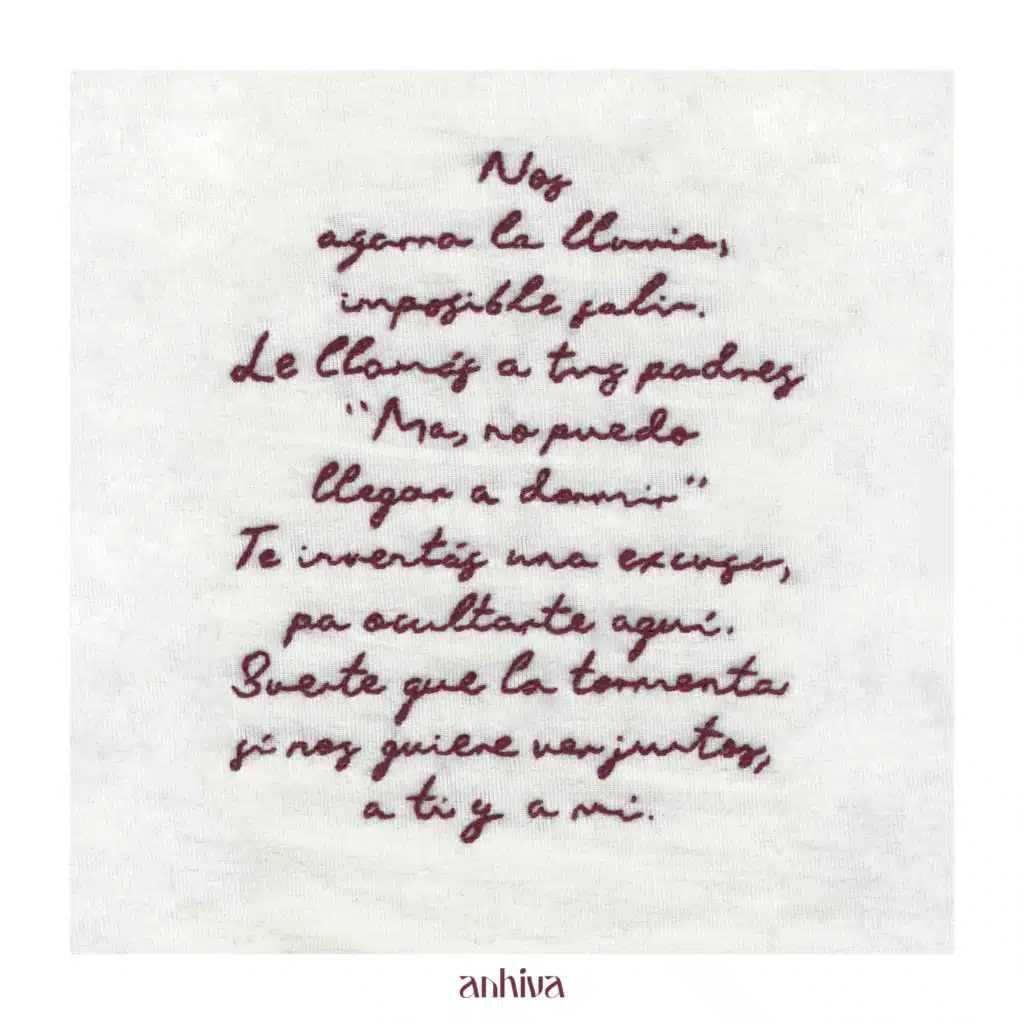 Nos
agarra la lluvia,
imposible salir.
Le llamás a tus padres
"Ma, no puedo
llegar a dormir"
Te inventás una excusa,
pa ocultarte aquí.
Suerte que la tormenta
sí nos quiere ver juntos,
a ti y a mi.
anhiva